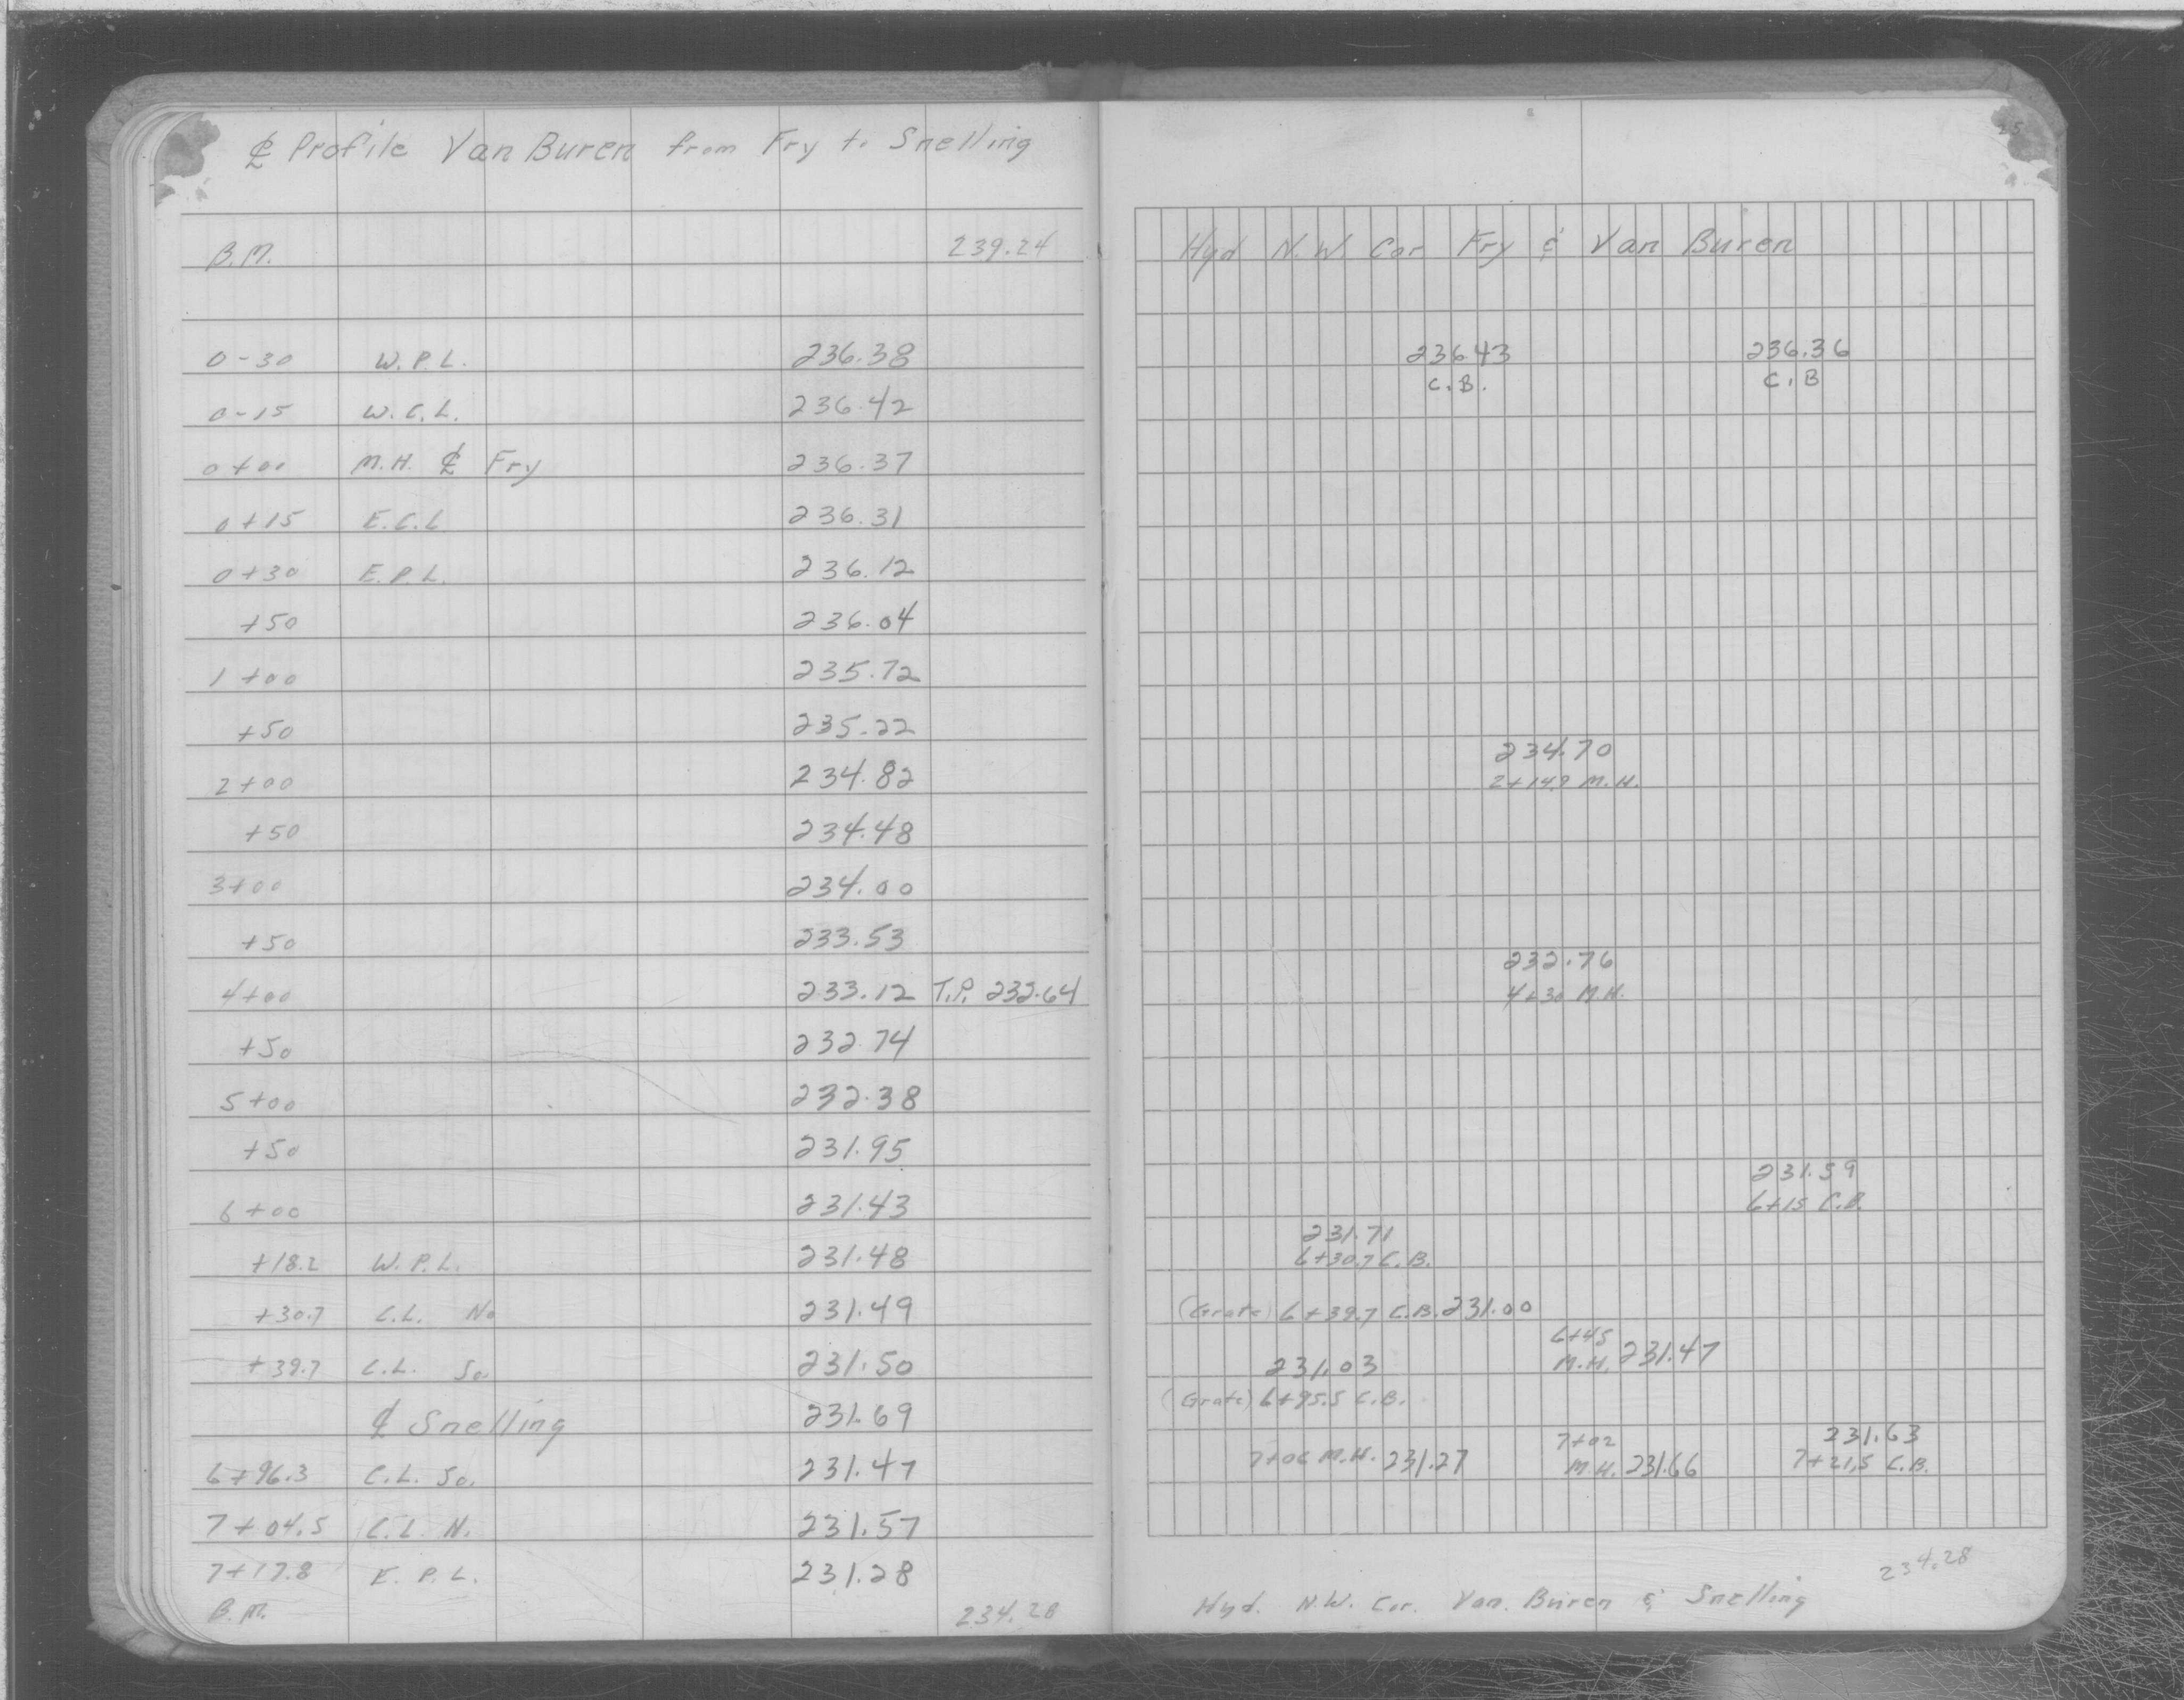 ℄ Profile Van Buren from Fry to Snelling
B.M. 239.24
0-30 W.P.L. 236.38
0-15 W.C.L. 236.42
0+00 M.H. ℄ Fry 236.37
0+15 E.C.L 236.31
0+30 E.P.L. 236.12
+50 236.04
1+00 235.72
+50 235.22
2+00 234.82
+50 234.48
3+00 234.00
+50 233.53
4+00 233.12 T.P. 232.64
+50 232.74
5+00 232.38
+50 231.95
6+00 231.43
+18.2 W.P.L. 231.48
+30.7 C.L. No 231.49
+39.7 C.L. So. 231.50
℄ Snelling 231.69
6+96.3 C.L. So. 231.47
7+04.5 C.L. N. 231.57
7+17.8 E.P.L. 231.28
B.M. 234.28
25
Hyd N.W. Cor Fry & Van Buren
236.43 236.36
C.B. C.B
234.70
2+149 M.H.
232.76
4+30 M.H.
231.59
6+15 C.B.
231.71
6+30.7 C.B.
(Grate) 6+39.7 C.B. 231.00
6+45
M.H. 231.47
231.03
(Grate) 6+95.5 C.B.
7+02 231.63
7+06 M.H. 231.27 M.H. 231.66 7+21.5 C.B.
234.28
Hyd. N.W. Cor. Van. Buren & Snelling